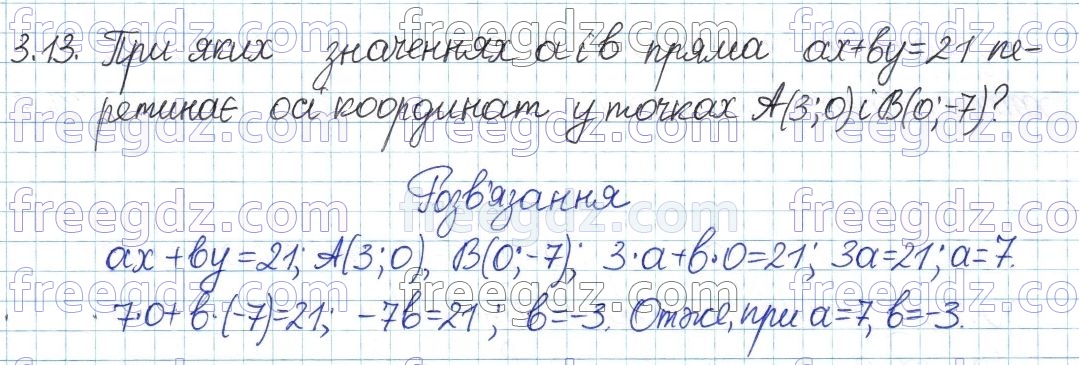 3.13. При яких значеннях a і в пряма ax+вy=21 пе-
ретинає осі координат у точках A(3;0) і B(0;-7)?
Розв'язання
ax+вy=21; A(3;0), B(0;-7); 3·a+в·0=21; 3a=21; a=7.
7·0+в·(-7)=21; -7в=21; в=-3. Отже, при a=7, в=-3.
freegdz.com